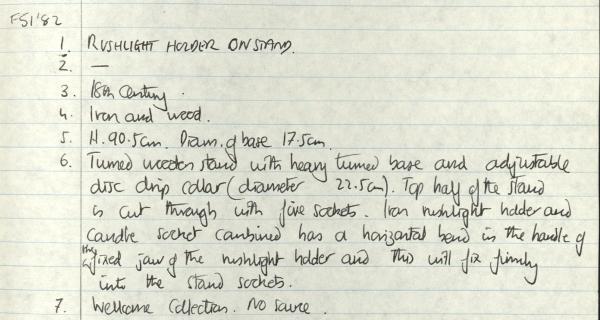 FSI '82
1. RUSHLIGHT HOLDER ON STAND.
2. —
3. 18th Century.
4. Iron and wood.
5. H. 90.5cm. Diam. of base 17.5cm.
6. Turned wooden stand with heavy turned base and adjustable
disc drip collar (diameter 22.5cm). Top half of the stand
is cut through with five sockets. Iron rushlight holder and
candle socket combined has a horizontal bend in the handle of
the fixed jaw of the rushlight holder and this will fix firmly
into the stand sockets.
7. Wellcome Collection. No source.